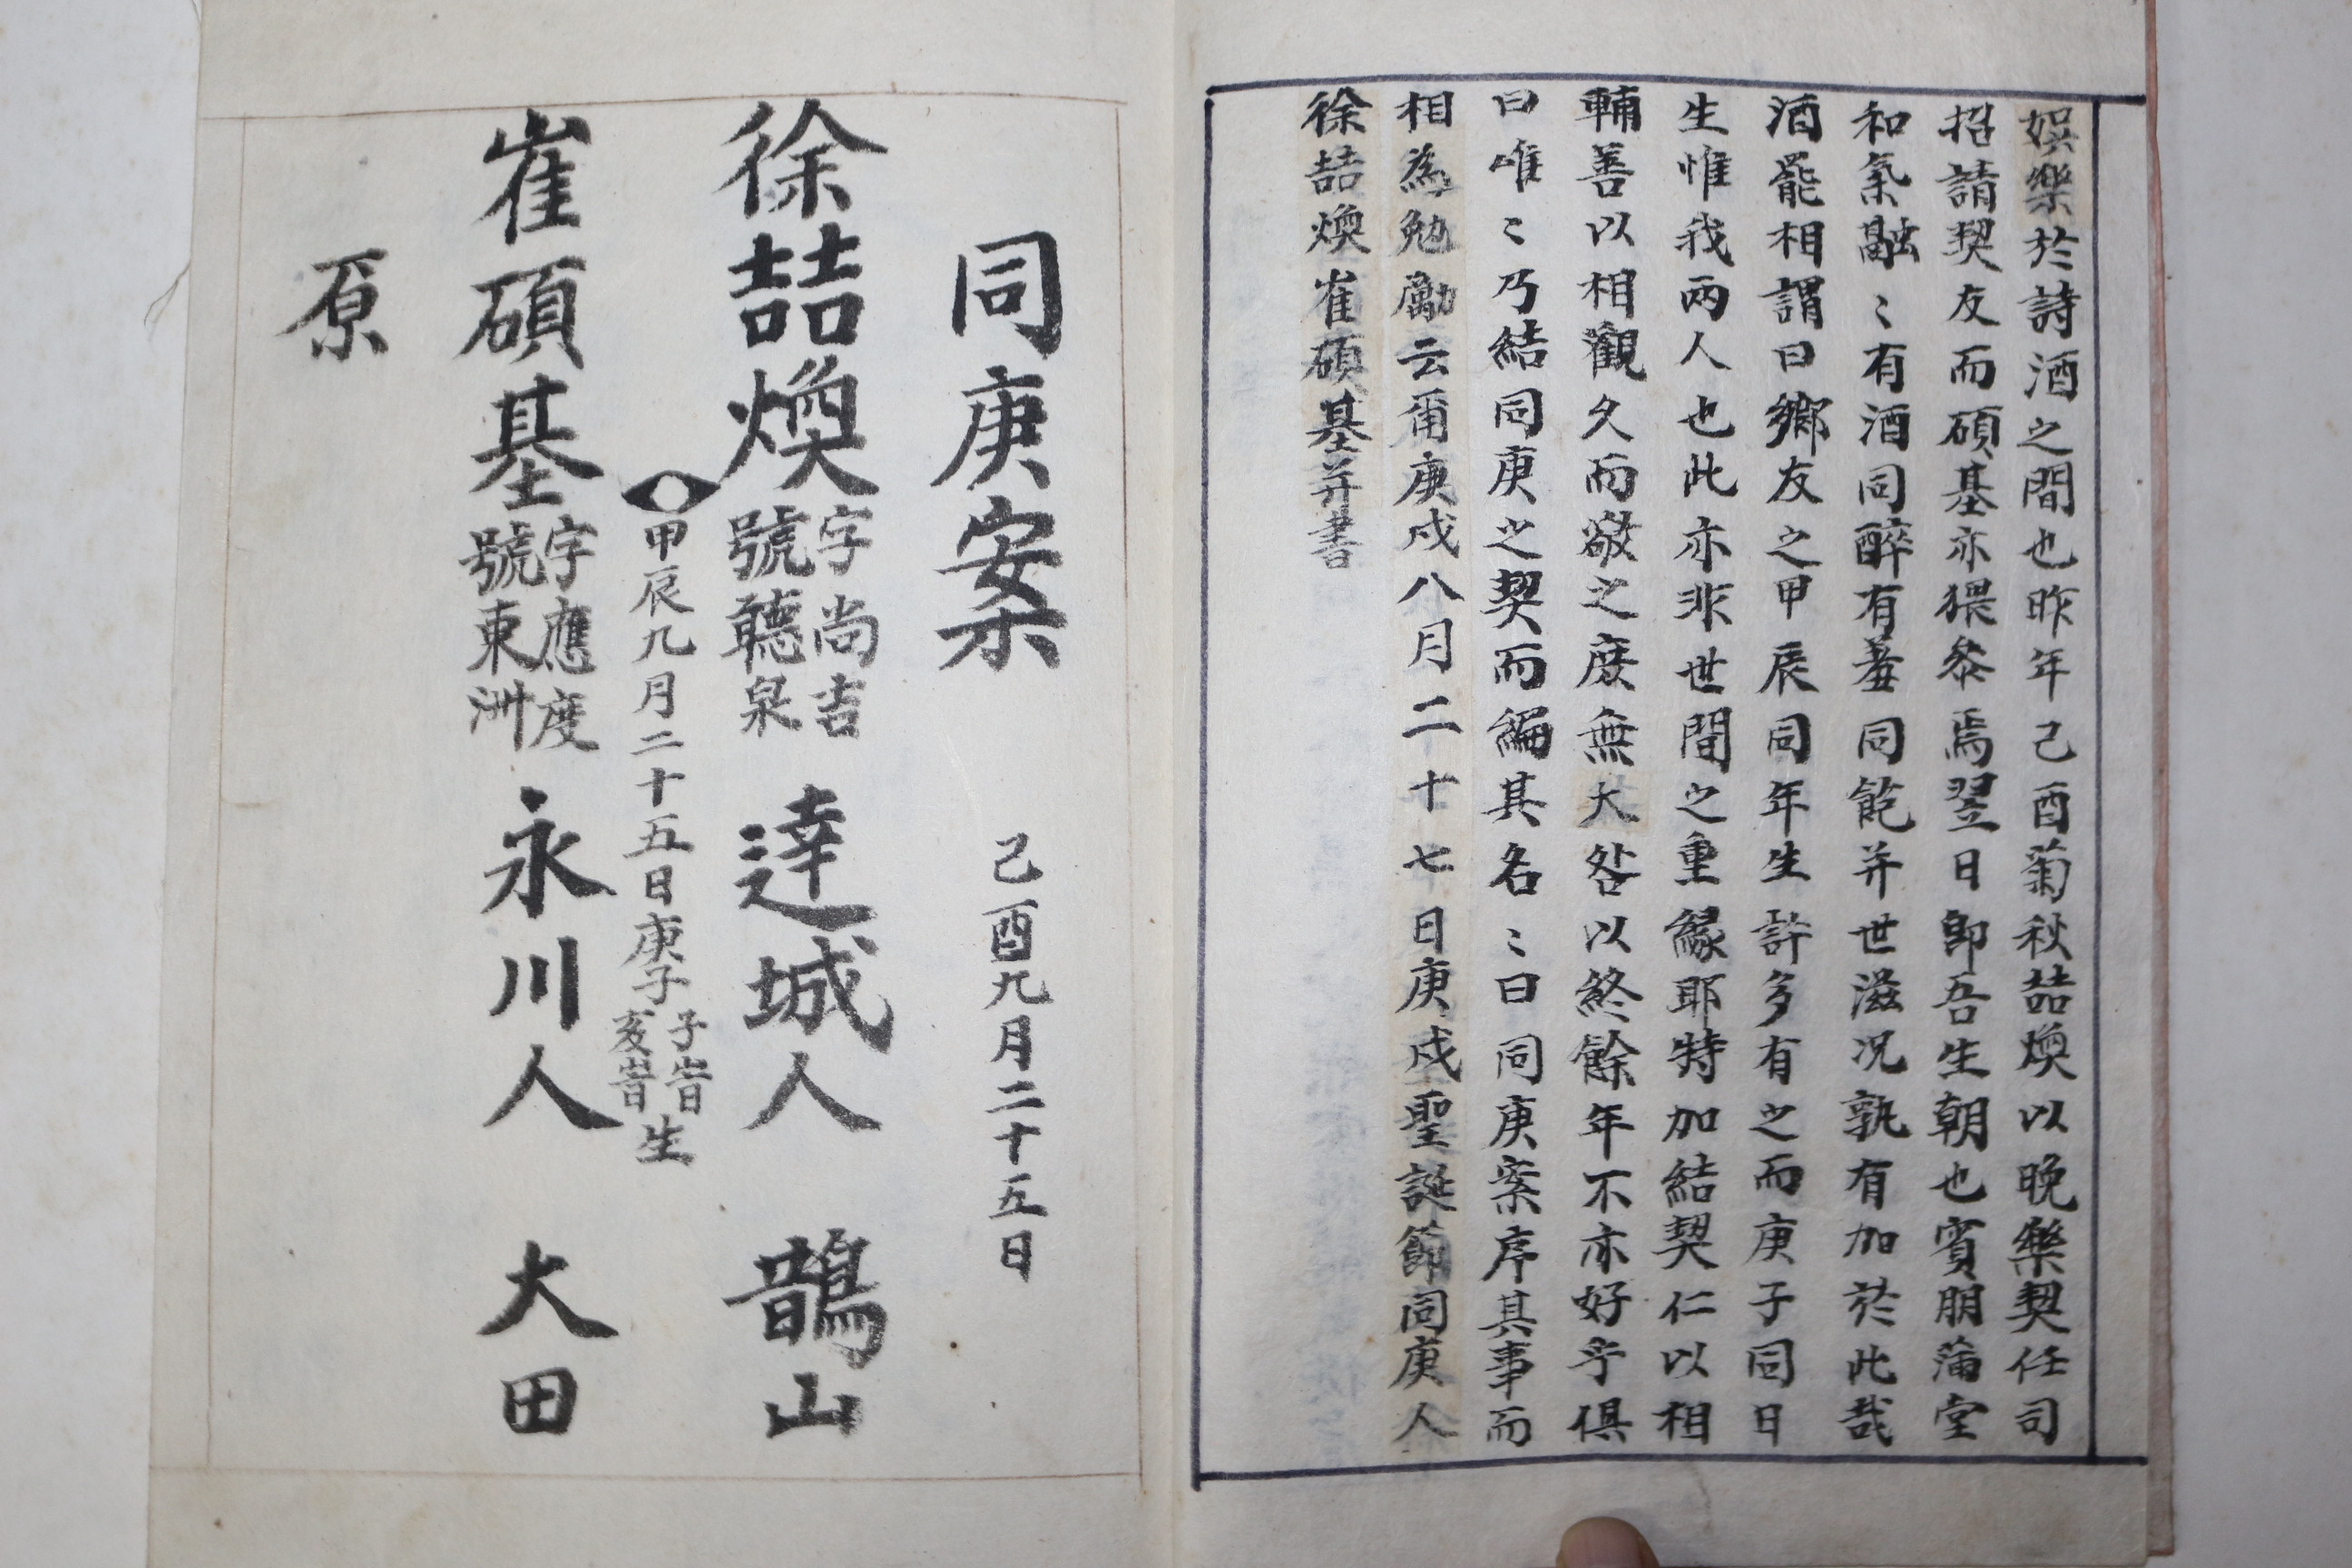 娯樂於詩酒之間也昨年己酉菊秋喆煥以晚樂契任司
招請契友而碩基亦猥叅焉翌日卽吾生朝也賓朋蒲堂
和氣融〻有酒同醉有羞同飽并世滋况孰有加於此哉
酒罷相謂曰鄉友之甲辰同年生許多有之而庚子同日
生惟我兩人也此亦非世間之重緣耶特加結契仁以相
輔善以相觀久而敬之庶無大咎以終餘年不亦好乎俱
曰唯〻乃結同庚之契而編其名〻曰同庚案序其事而
相為勉勵云爾庚戌八月二十七日庚戌聖誕節同庚人
徐喆煥崔碩基并書
同庚案 己酉九月二十五日
徐喆煥 字尚吉 號聽泉 達城人 鵲山
甲辰九月二十五日庚子 子旹 亥旹 生
崔碩基 字應度 號東洲 永川人 大田
原